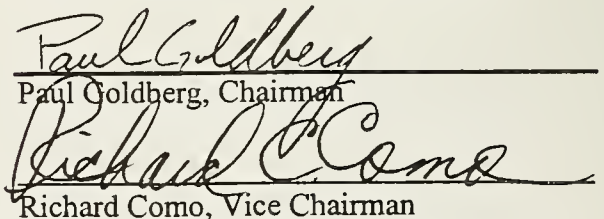 Paul Goldberg
Paul Goldberg, Chairman
Richard C. Como
Richard Como, Vice Chairman